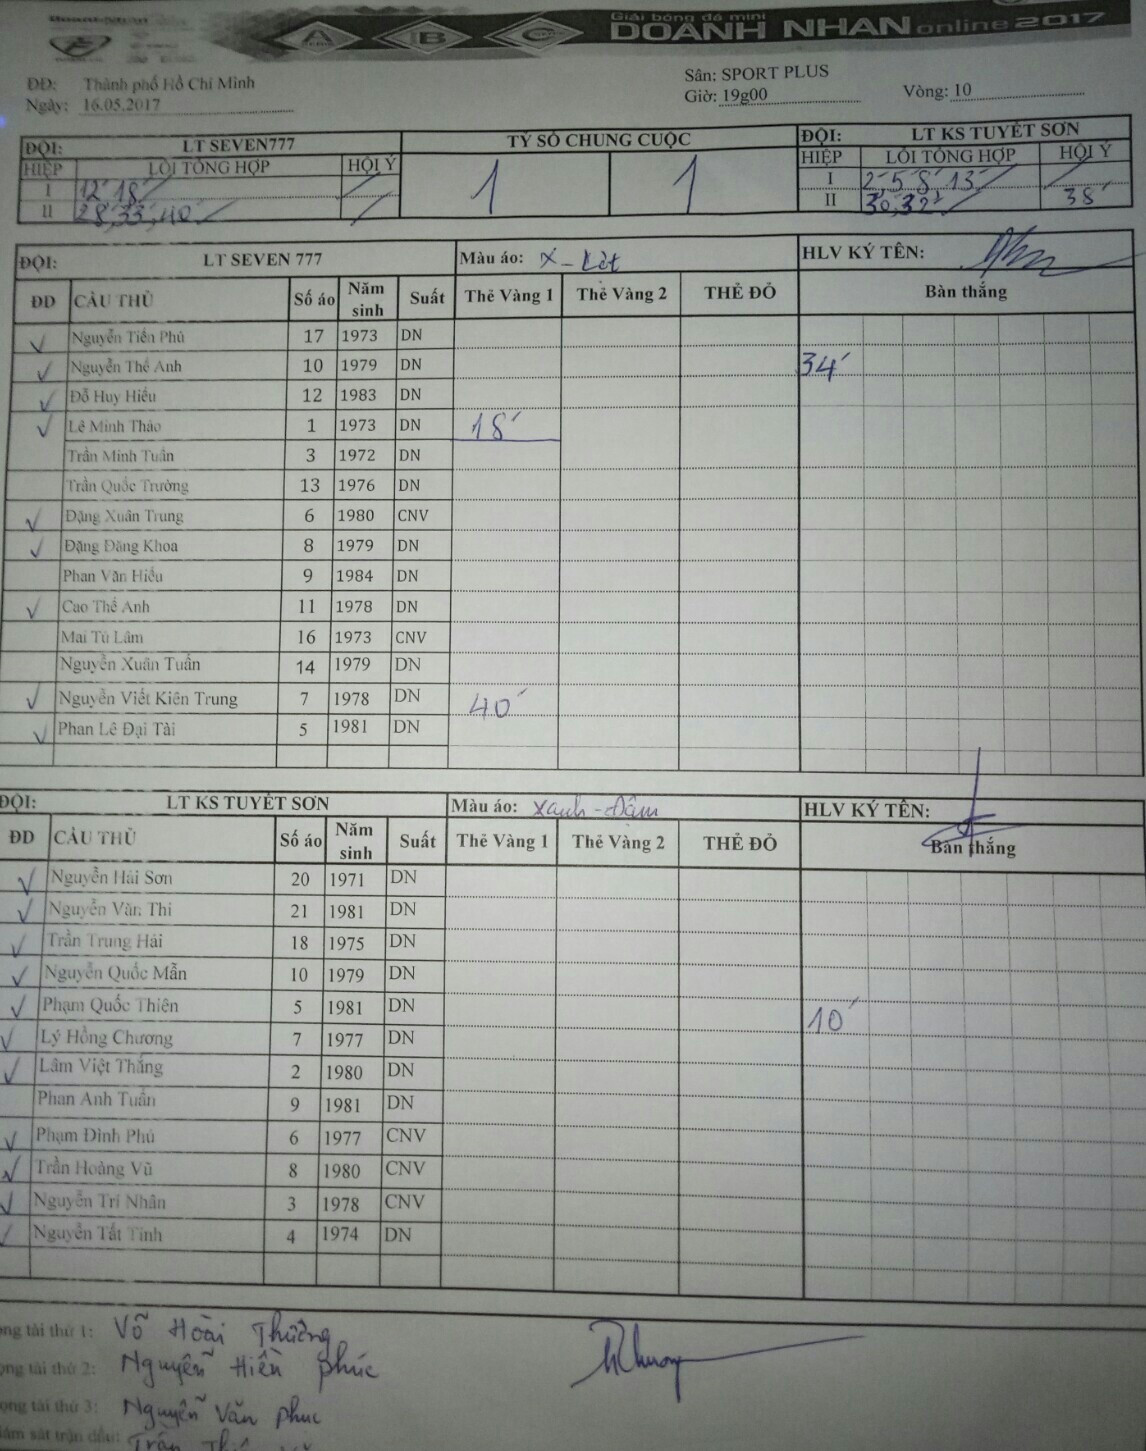 Giải bóng đá mini
DOANH NHAN online 2017
A B C
ĐĐ: Thành phố Hồ Chí Minh
Sân: SPORT PLUS
Ngày: 16.05.2017
Giờ: 19g00 Vòng: 10
ĐỘI: LT SEVEN777 TỶ SỐ CHUNG CUỘC ĐỘI: LT KS TUYẾT SƠN
HIỆP LỖI TỔNG HỢP HỘI Ý 1 1 HIỆP LỖI TỔNG HỢP HỘI Ý
I 12' 18' I 2' 5' 8' 13'
II 28', 33', 40' II 30, 32' 38'
ĐỘI: LT SEVEN 777 Màu áo: X - Lót HLV KÝ TÊN:
ĐD CẦU THỦ Số áo Năm sinh Suất Thẻ Vàng 1 Thẻ Vàng 2 THẺ ĐỎ Bàn thắng
✓ Nguyễn Tiến Phú 17 1973 DN
✓ Nguyễn Thế Anh 10 1979 DN 34'
✓ Đỗ Huy Hiếu 12 1983 DN
✓ Lê Minh Thảo 1 1973 DN 18'
Trần Minh Tuấn 3 1972 DN
Trần Quốc Trường 13 1976 DN
✓ Đặng Xuân Trung 6 1980 CNV
✓ Đặng Đăng Khoa 8 1979 DN
Phan Văn Hiếu 9 1984 DN
✓ Cao Thế Anh 11 1978 DN
Mai Tú Lâm 16 1973 CNV
Nguyễn Xuân Tuấn 14 1979 DN
✓ Nguyễn Viết Kiên Trung 7 1978 DN 40'
✓ Phan Lê Đại Tài 5 1981 DN
ĐỘI: LT KS TUYẾT SƠN Màu áo: Xanh - Đậm HLV KÝ TÊN:
ĐD CẦU THỦ Số áo Năm sinh Suất Thẻ Vàng 1 Thẻ Vàng 2 THẺ ĐỎ Bàn thắng
✓ Nguyễn Hải Sơn 20 1971 DN
✓ Nguyễn Văn Thi 21 1981 DN
✓ Trần Trung Hải 18 1975 DN
✓ Nguyễn Quốc Mẫn 10 1979 DN
✓ Phạm Quốc Thiên 5 1981 DN 10'
✓ Lý Hồng Chương 7 1977 DN
✓ Lâm Việt Thắng 2 1980 DN
Phan Anh Tuấn 9 1981 DN
✓ Phạm Đình Phú 6 1977 CNV
✓ Trần Hoàng Vũ 8 1980 CNV
✓ Nguyễn Trí Nhân 3 1978 CNV
✓ Nguyễn Tất Tính 4 1974 DN
ọng tài thứ 1: Võ Hoài Thường
ọng tài thứ 2: Nguyễn Hiền Phúc
ọng tài thứ 3: Nguyễn Văn Phuc
iám sát trận đấu: Trần